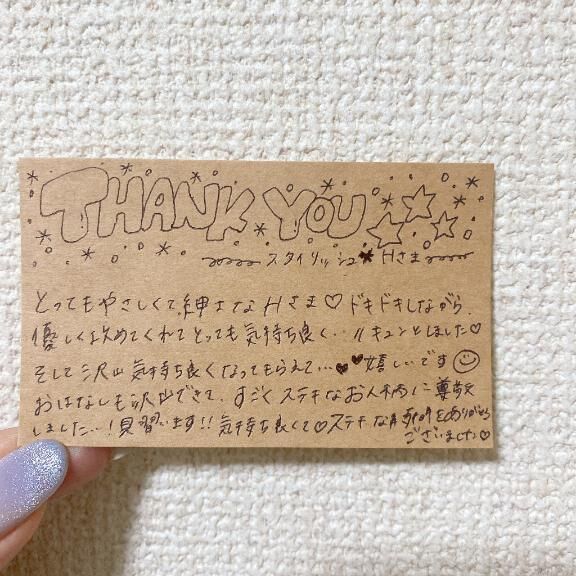 THANK YOU
スタイリッシュ Hさま
とってもやさしくて紳士なHさま♡ ドキドキしながら
優しく攻めてくれてとっても気持ち良く… キュンとしました♡
そして沢山気持ち良くなってもらえて…♥♥嬉しいです
おはなしも沢山できて、すごくステキなお人柄に尊敬
しました…!見習います!!気持ち良くて♡ステキなお時間をありがとう
ございました♡